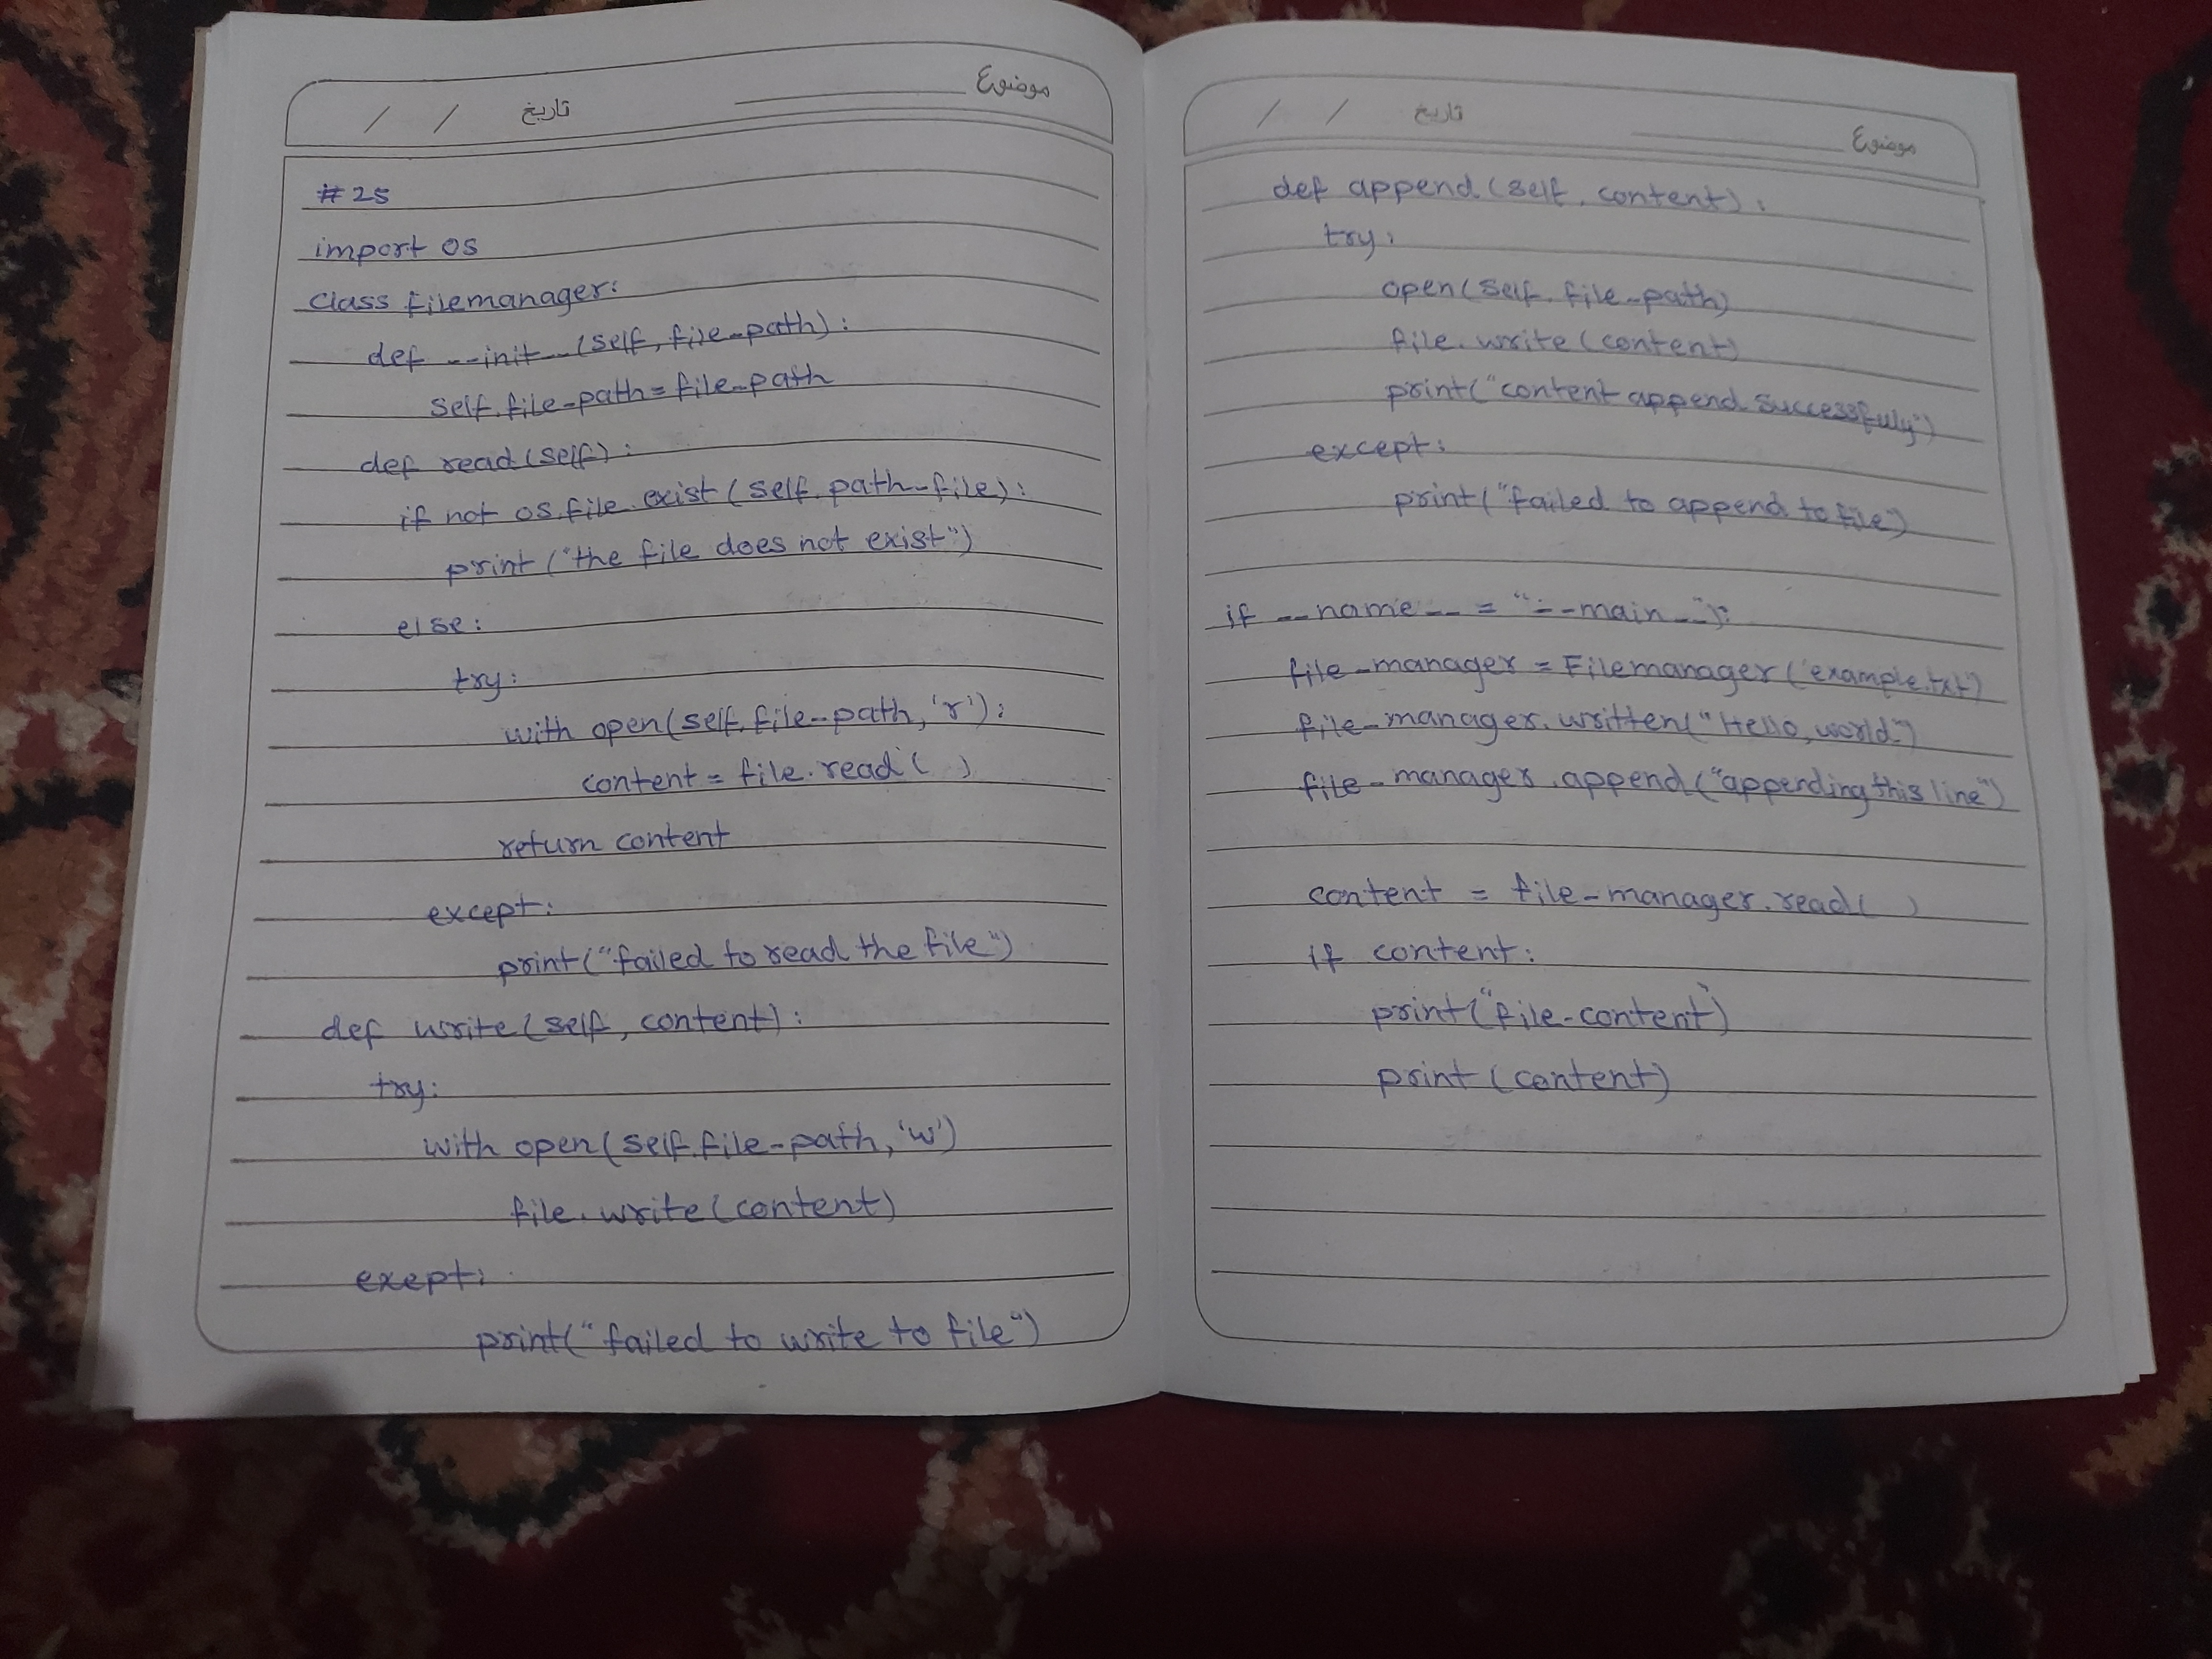 / / تاریخ
موضوع
#25
import os
class filemanager:
def __init__(self, file_path):
self.file_path = file_path
def read(self):
if not os.file.exist(self.path_file):
print('the file does not exist")
else:
try:
with open(self.file_path, 'r'):
content = file.read( )
return content
except:
print("failed to read the file")
def write(self, content):
try:
with open(self.file-path, 'w')
file.write(content)
except:
print("failed to write to file")
/ / تاریخ
موضوع
def append(self, content):
try:
open(self.file_path)
file.write(content)
print("content append successfuly")
except:
print("failed to append to file")
if __name__ = "__main__"):
file_manager = Filemanager('example.txt")
file_manager.written("Hello, world")
file_manager.append("appending this line")
content = file-manager.read( )
if content:
print("file-content")
print(content)